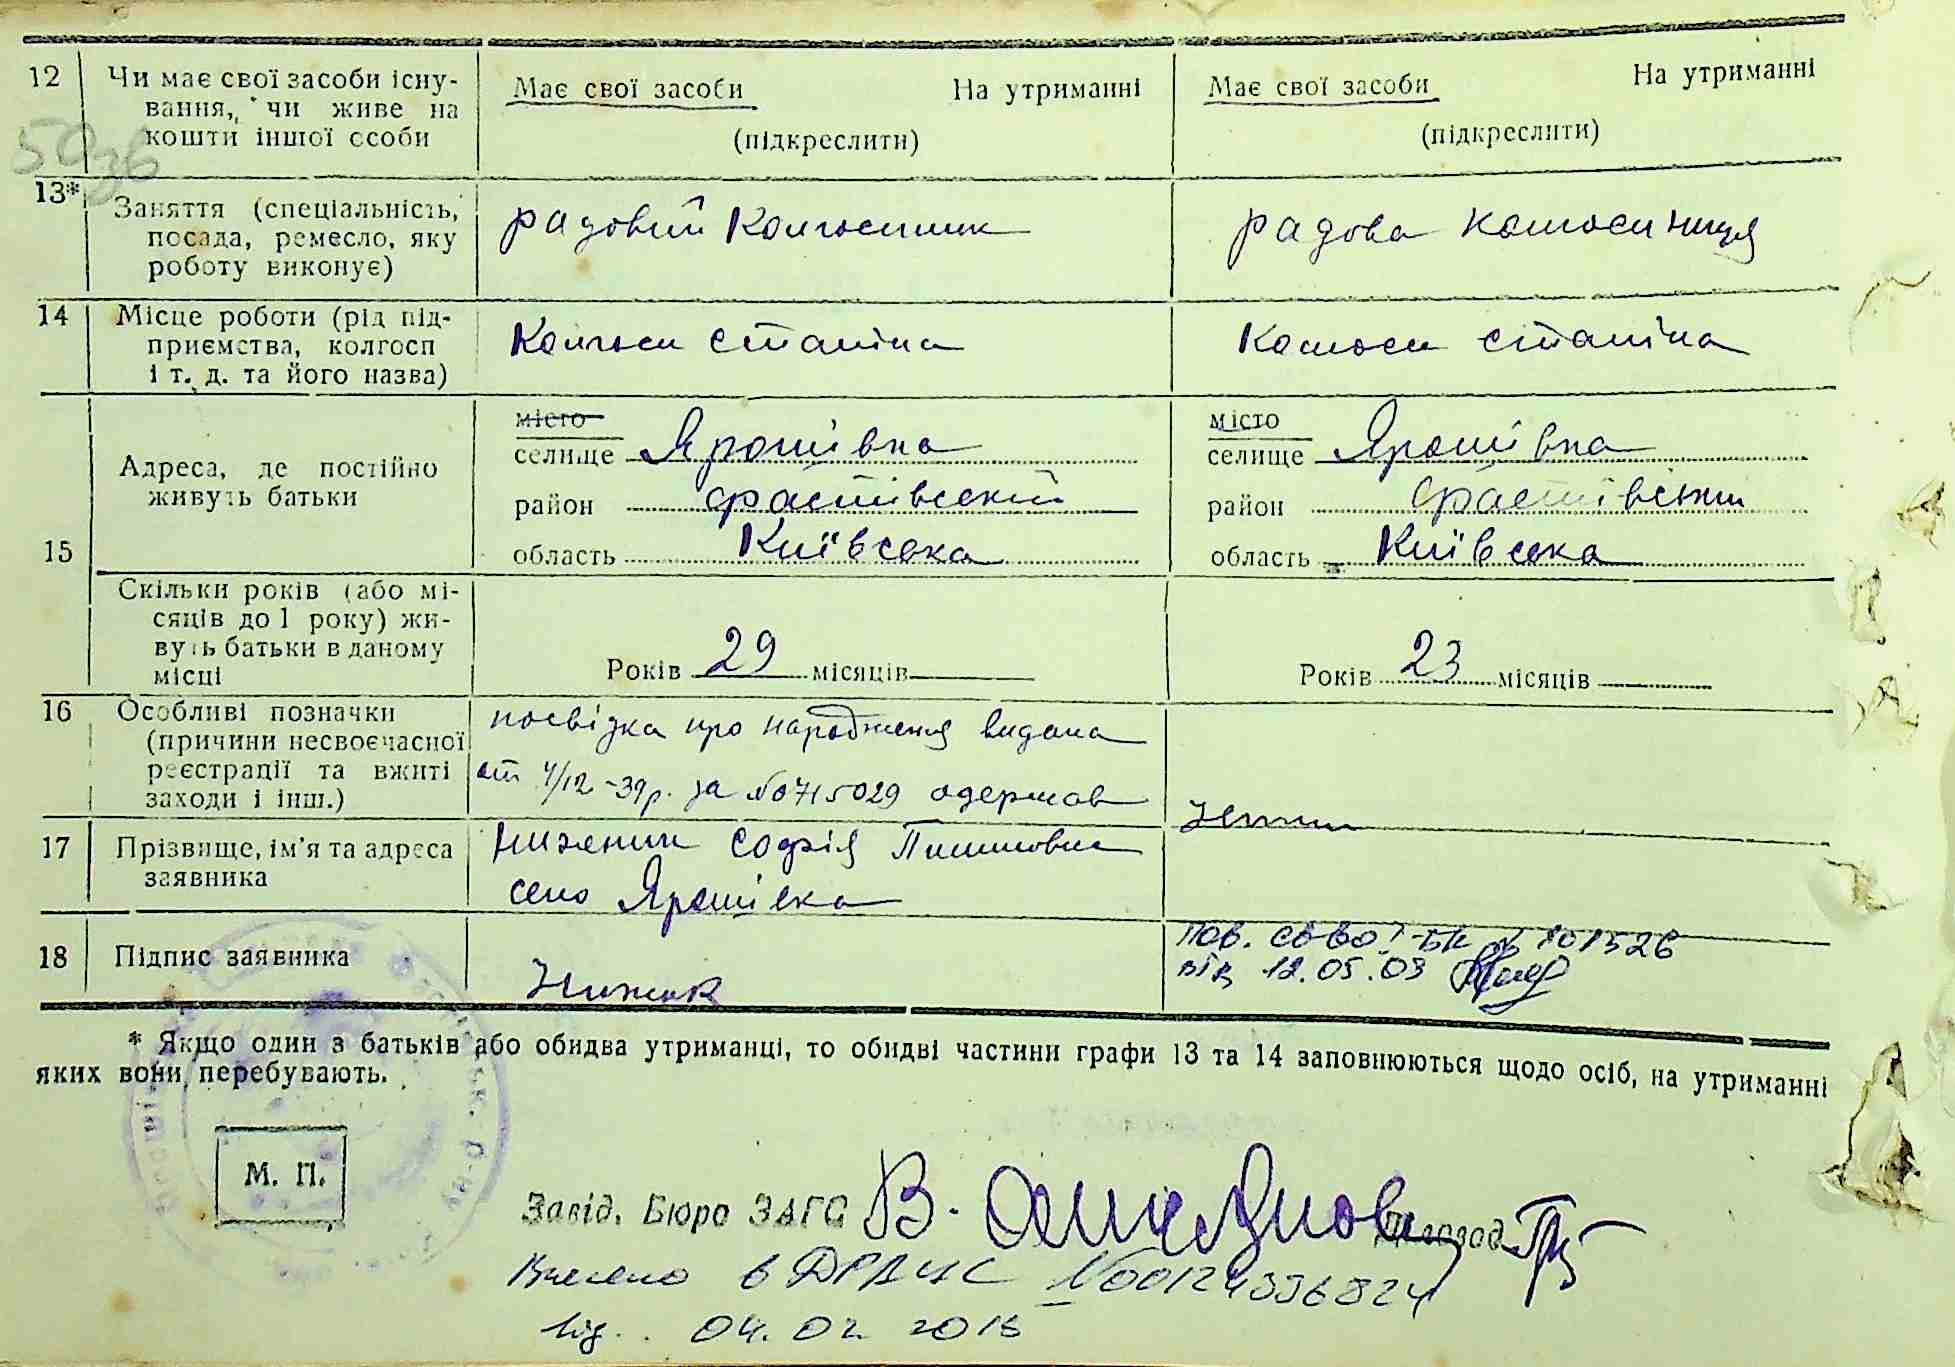 12 Чи має свої засоби існу-
вання, чи живе на
кошти іншої особи
Має свої засоби На утриманні
(підкреслити)
Має свої засоби На утриманні
(підкреслити)
13* Заняття (спеціальність,
посада, ремесло, яку
роботу виконує)
радовий колгоспник
радова колгоспниця
14 Місце роботи (рід під-
приємства, колгосп
і т. д. та його назва)
Колгосп Сталіна
Колгосп Сталіна
15 Адреса, де постійно
живуть батьки
місто
селище Ярошівка
район Фастівський
область Київська
місто
селище Ярошівка
район Фастівський
область Київська
Скільки років (або мі-
сяців до 1 року) жи-
вуть батьки в даному
місці
Років 29 місяців
Років 23 місяців
16 Особливі позначки
(причини несвоєчасної
реєстрації та вжиті
заходи і інш.)
посвідка про народження видана
от 4/12-39р. за №0715029 одержав
17 Прізвище, ім'я та адреса
заявника
Софія
село Ярошівка
18 Підпис заявника
пов. св-во І-БК № 101526
від 12.05.09
* Якщо один з батьків або обидва утриманці, то обидві частини графи 13 та 14 заповнюються щодо осіб, на утриманні
яких вони перебувають.
М. П.
Завід. Бюро ЗАГС В.
Внесено в ДРАЦС №00124336824
від. 04.02 2016